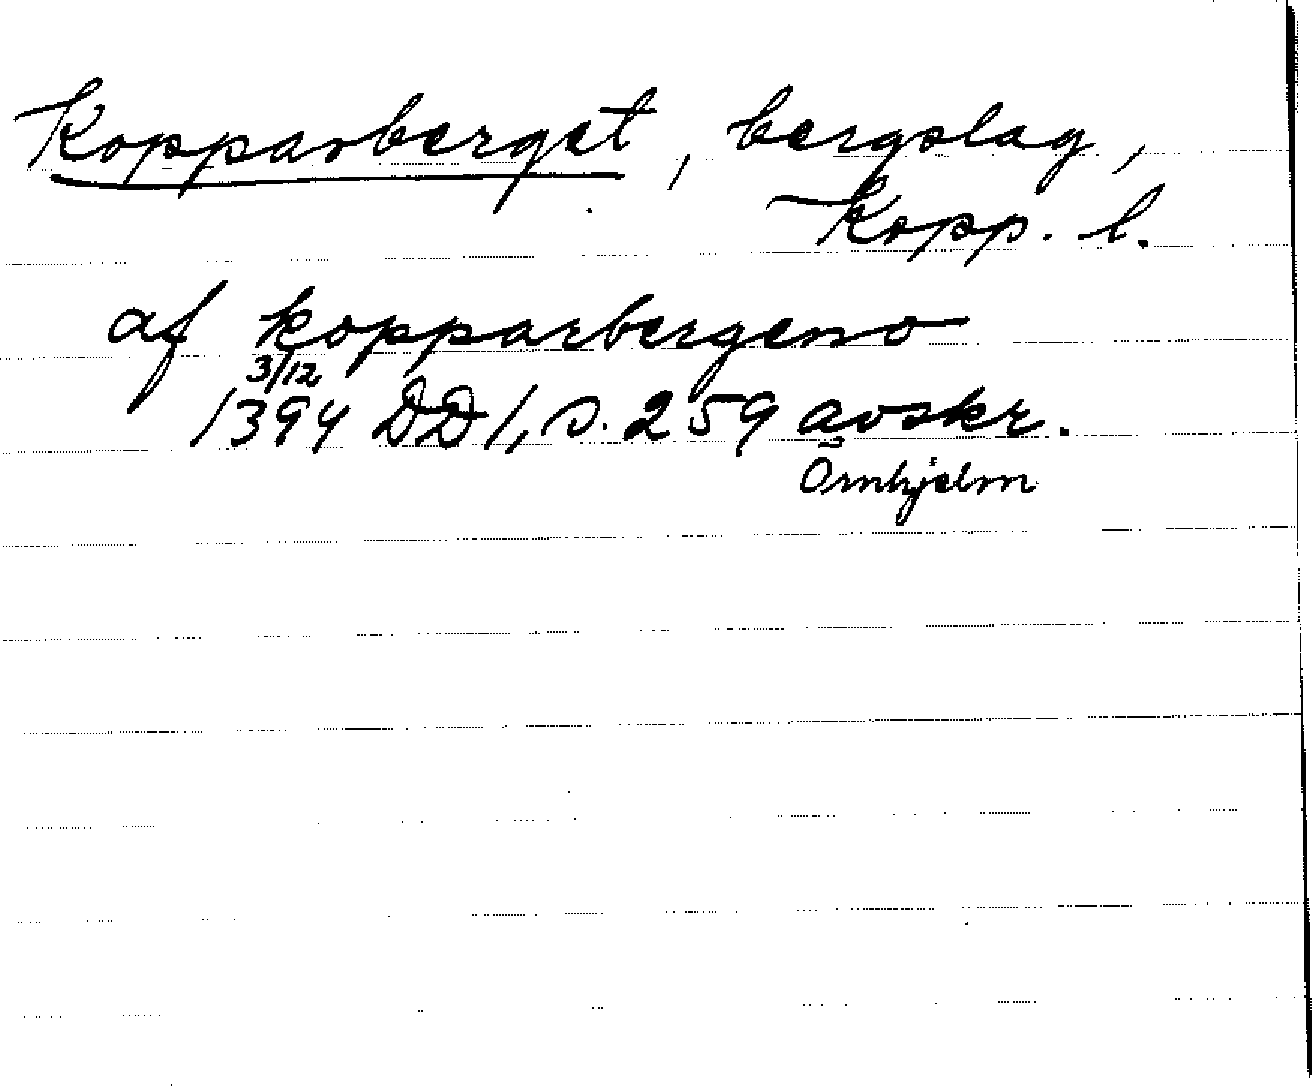 Kopparberget, bergslag,
Kopp. l.
af kopparbergeno
3/12
1394 DD 1, s. 259 avskr.
Örnhjelm